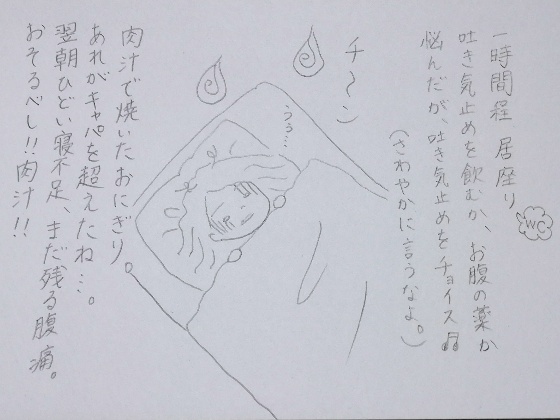 一時間程居座り
WC
吐き気止めを飲むか、お腹の薬か
悩んだが、吐き気止めをチョイス♫
(さわやかに言うなよ。)
チ〜ン
うぅ…
肉汁で焼いたおにぎり。
あれがキャパを超えたね…。
翌朝ひどい寝不足、まだ残る腹痛。
おそるべし!!肉汁!!